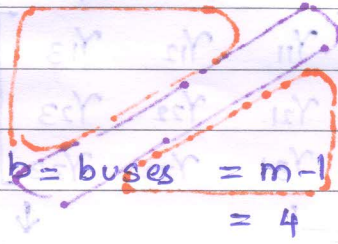 b = buses = m-1
= 4